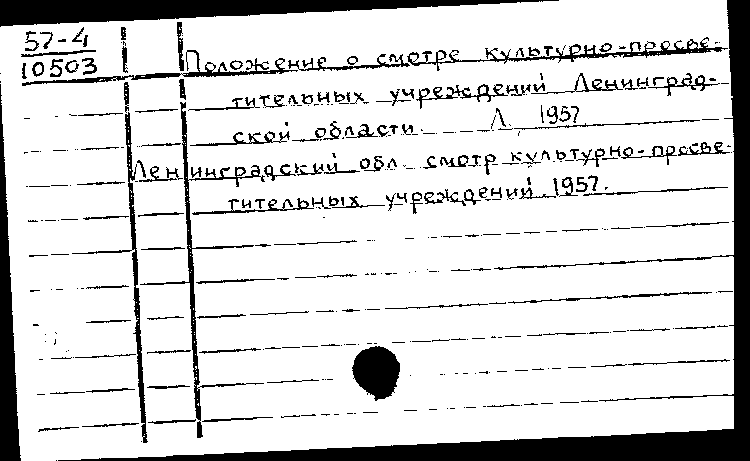 57-4
10503
Положение о смотре культурно-просве-
тительных учреждений Ленинград-
ской области. Л. 1957
Ленинградский обл. смотр культурно-просве-
тительных учреждений 1957.